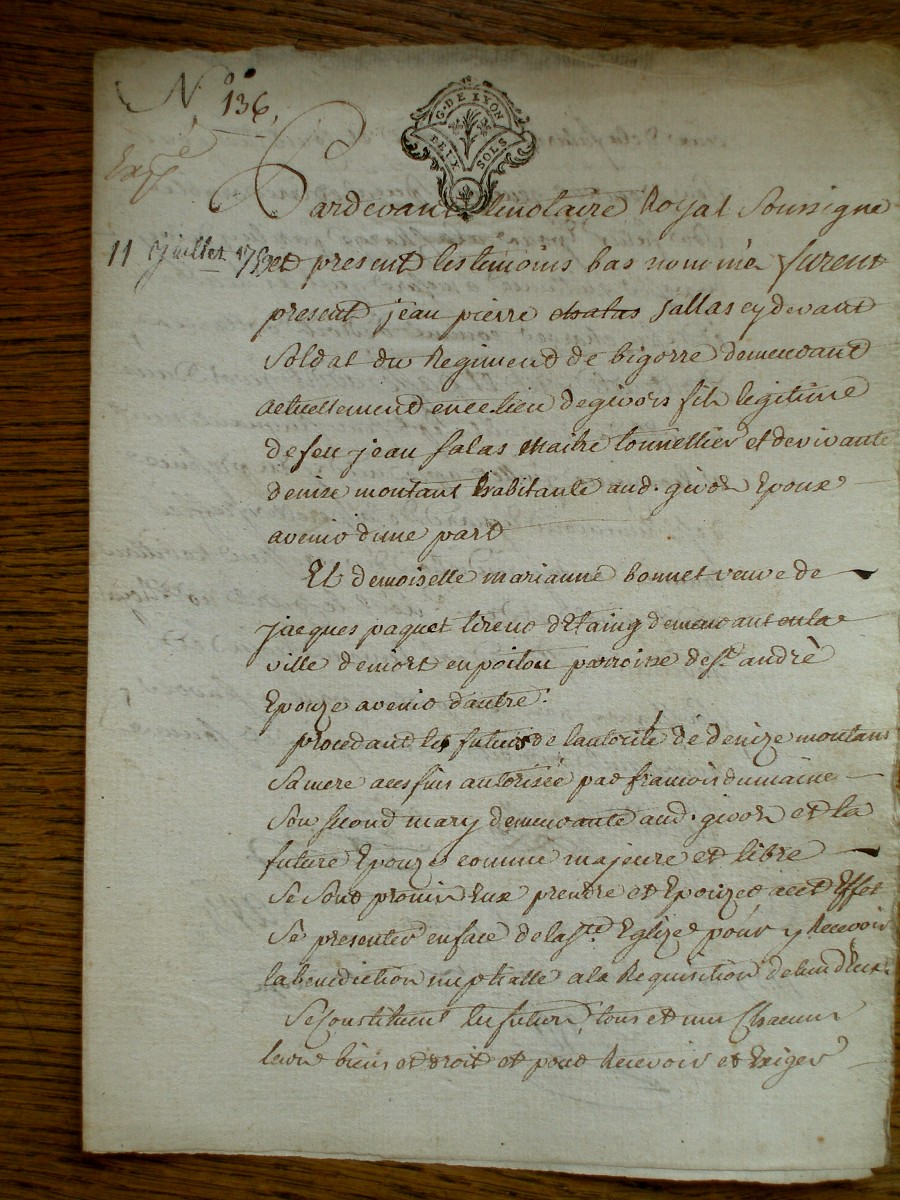 N.° 136.
G. DE LYON
DEUX SOLS
Exp.é
Pardevant le notaire Royal Soussigné
11 juillet
et present les temoins bas nommés furent
present jean pierre chalas Sallas cy devant
Soldat du Regimend de bigorre demeurant
actuellement en ce lieu de givors fils legitime
de feu jean Salas maitre tonnellier et de vivante
denise montant habitante aud. givors Epoux
avenir d'une part
Et demoiselle marianne bonnet veuve de
jacques paquet tireur d'Etaing demeurant en la
ville de niort en poitou parroisse de St. andrè
Epouze avenir d'autre.
procedant les futurs de l'autorité de denize montans
Sa mere a ces fins autorisée par francois dumaine
Son second mary demeurante aud. givors et la
future Epouze comme majeure et libre
Se sont promis Eux prendre et Epouzer a cet Effet
Se presenter en face de la Ste. Eglize pour y Recevoir
la benediction nuptialle a la Requisition de lun d'Eux.
Se constituent les futurs tous et uns Chacuns
leurs biens et droit et pour Recevoir et Exiger